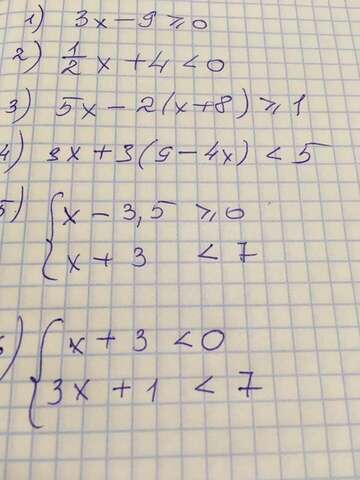 1) 3x - 9 ⩾ 0
2) 1/2 x + 4 < 0
3) 5x - 2(x+8) ⩾ 1
4) 9x + 3(9 - 4x) < 5
5) { x - 3,5 ⩾ 0
x + 3 < 7
6) { x + 3 < 0
3x + 1 < 7